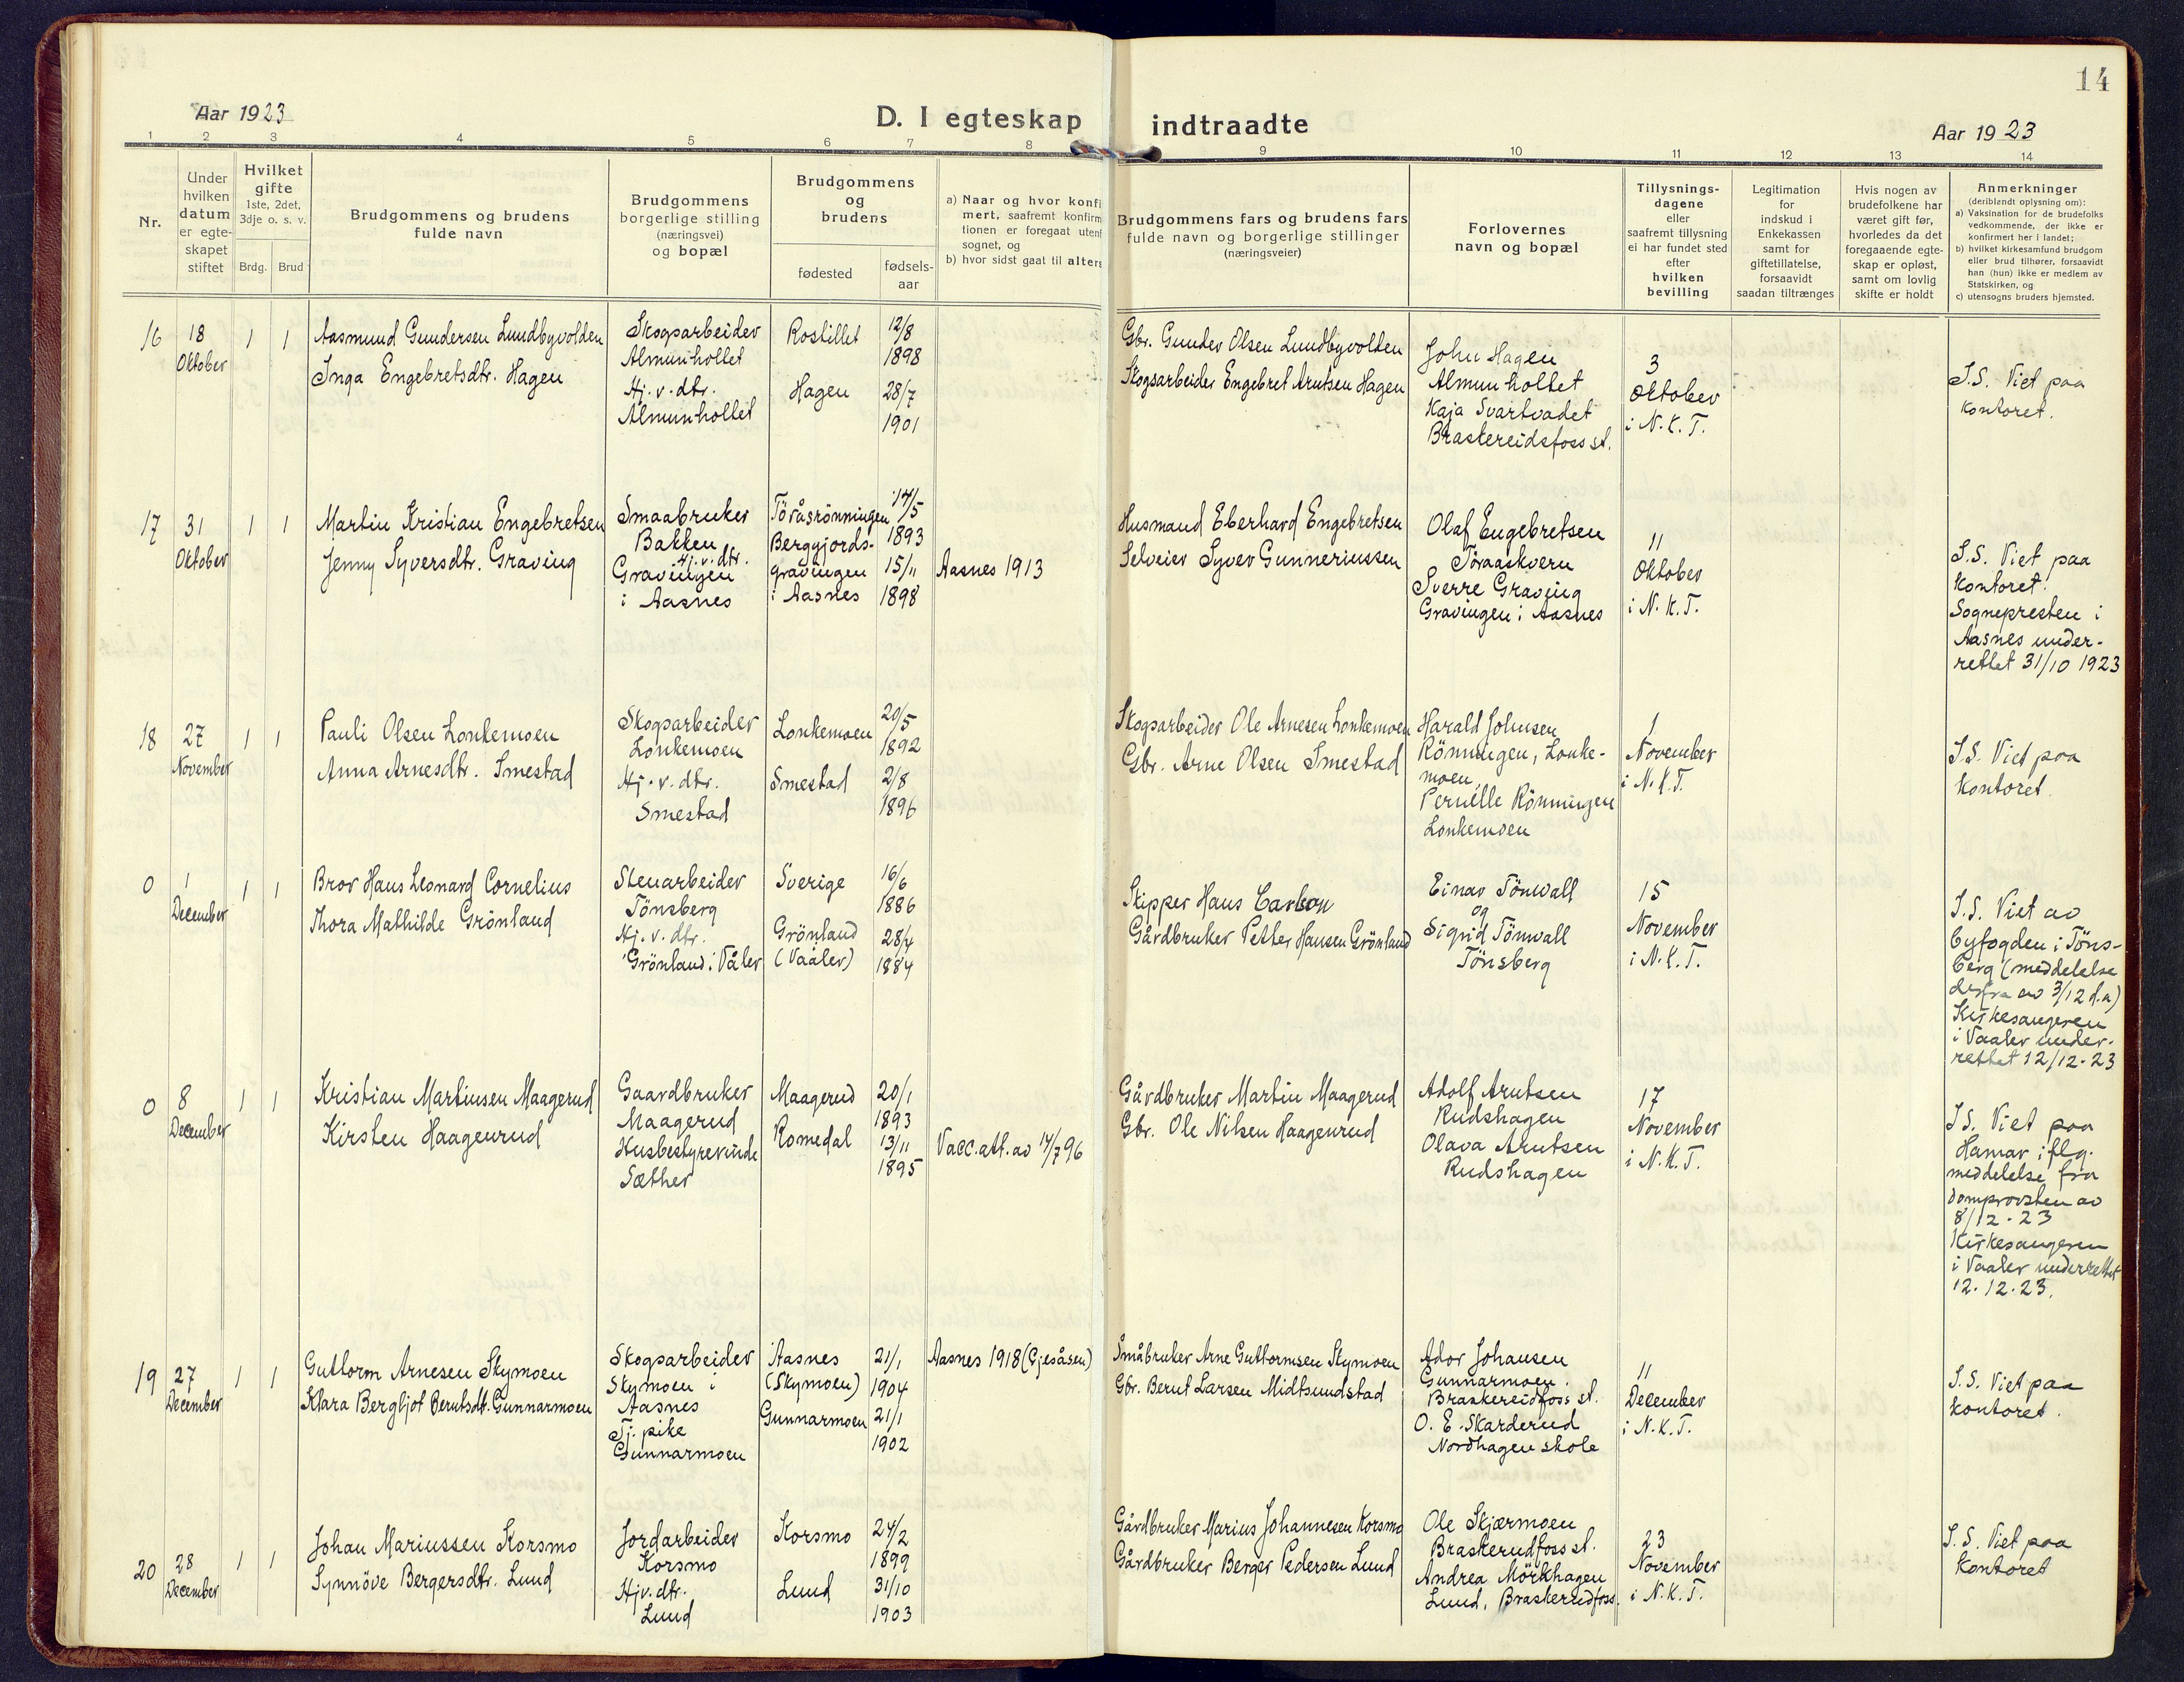 14
Aar 1923
D. I egteskap indtraadte
Aar 1923
1 2 3 4 5 6 7 8 9 10 11 12 13 14
Nr.
Under
hvilken
datum
er egte-
skapet
stiftet
Hvilket
gifte
1ste, 2det,
3dje o. s. v.
Brdg. Brud
Brudgommens og brudens
fulde navn
Brudgommens
borgerlige stilling
(næringsvei)
og bopæl
Brudgommens
og
brudens
fødested
fødsels-
aar
a) Naar og hvor konfi
mert, saafremt konfirm
tionen er foregaat utenf
sognet, og
b) hvor sidst gaat til alters
Brudgommens fars og brudens fars
fulde navn og borgerlige stillinger
(næringsveier)
Forlovernes
navn og bopæl
Tillysnings-
dagene
eller
saafremt tillysning
ei har fundet sted
efter
hvilken
bevilling
Legitimation
for
indskud i
Enkekassen
samt for
giftetillatelse,
forsaavidt
saadan tiltrænges
Hvis nogen av
brudefolkene har
været gift før,
hvorledes da det
foregaaende egte-
skap er opløst,
samt om lovlig
skifte er holdt
Anmerkninger
(deriblandt oplysning om):
a) Vaksination for de brudefolks
vedkommende, der ikke er
konfirmert her i landet;
b) hvilket kirkesamfund brudgom
eller brud tilhører, forsaavidt
han (hun) ikke er medlem av
Statskirken, og
c) utensogns bruders hjemsted.
16
18
Oktober
1 1
Aasmund Gundersen Lundbyvolden
Inga Engebretsdtr. Hagen
Skogsarbeider
Almunholtet
Hj. v. dtr.
Almunholtet
Rostillet
Hagen
12/8
1898
28/7
1901
Gbr. Gunder Olsen Lundbyvolden
Skogsarbeider Engebret Arntsen Hagen
John Hagen
Almunholtet
Kaja Svartvadet
Braskereidsfoss st.
3
Oktober
i N. K. T.
I.S. Viet paa
kontoret.
17
31
Oktober
1 1
Martin Kristian Engebretsen
Jenny Syversdtr. Graving
Smaabruker
Bakken
Hj. v. dtr.
Gravingen
i Aasnes
Töråsrönningen
Berggjords-
gravingen
i Aasnes
14/5
1893
15/11
1898
Aasnes 1913
Husmand Eberhard Engebretsen
Selveier Syver Gunneriussen
Olaf Engebretsen
Töraaskvern
Sverre Graving
Gravingen i Aasnes
11
Oktober
i N. K. T.
I.S. Viet paa
kontoret.
Sognepresten i
Aasnes under-
rettet 31/10 1923
18
27
November
1 1
Pauli Olsen Lonkemoen
Anna Arnesdtr. Smestad
Skogsarbeider
Lonkemoen
Hj. v. dtr.
Smestad
Lonkemoen
Smestad
20/5
1892
2/8
1896
Skogsarbeider Ole Arnesen Lonkemoen
Gbr. Arne Olsen Smestad
Harald Johnsen
Rönningen, Lonke-
moen
Pernille Rönningen
Lonkemoen
1
November
i N. K. T.
I.S. Viet paa
kontoret.
0
1
December
1 1
Bror Hans Leonard Cornelius
Thora Mathilde Grönland
Stenarbeider
Tönsberg
Hj. v. dtr.
Grönland i Våler
Sverige
Grönland
(Vaaler)
16/6
1886
28/4
1884
Skipper Hans Carlson
Gårdbruker Petter Hansen Grönland
Einar Tönwall
og
Sigrid Tönwall
Tönsberg
15
November
i N. K. T.
I.S. Viet av
byfogden i Töns-
berg (meddelelse
derfra av 3/12 d.a)
Kirkesangeren
i Vaaler under-
rettet 12/12-23
0
8
December
1 1
Kristian Martinsen Maagerud
Kirsten Haagenrud
Gaardbruker
Maagerud
Husbestyrerinde
Sæther
Maagerud
Romedal
20/1
1893
13/11
1895
Vacc. att. av 14/7 96
Gårdbruker Martin Maagerud
Gbr. Ole Nilsen Haagenrud
Adolf Arntsen
Rudshagen
Olava Arntsen
Rudshagen
17
November
i N. K. T.
I.S. Viet paa
Hamar iflg.
meddelelse fra
domprovsten av
8/12-23
Kirkesangeren
i Vaaler underrettet
12.12.23.
19
27
December
1 1
Guttorm Arnesen Skymoen
Klara Bergljot Berntsdtr. Gunnarmoen
Skogsarbeider
Skymoen i
Aasnes
Tj. pike
Gunnarmoen
Aasnes
(Skymoen)
Gunnarmoen
21/1
1904
21/1
1902
Aasnes 1918 (Gjesåsen)
Småbruker Arne Guttormsen Skymoen
Gbr. Bernt Larsen Midtsundstad
Ador Johansen
Gunnarmoen.
Braskereidfoss st.
O. E. Skarderud
Nordhagen skole
11
December
i N. K. T.
I.S. Viet paa
kontoret.
20
28
December
1 1
Johan Mariussen Korsmo
Synnöve Bergersdtr. Lund
Jordarbeider
Korsmo
Hjv. dtr.
Lund
Korsmo
Lund
24/2
1899
31/10
1903
Gårdbruker Marius Johannesen Korsmo
Gårdbruker Berger Pedersen Lund
Ole Skjærmoen
Braskerudfoss st.
Andrea Mörkhagen
Lund, Braskerudfoss.
23
November
i N. K. T.
I.S. Viet paa
kontoret